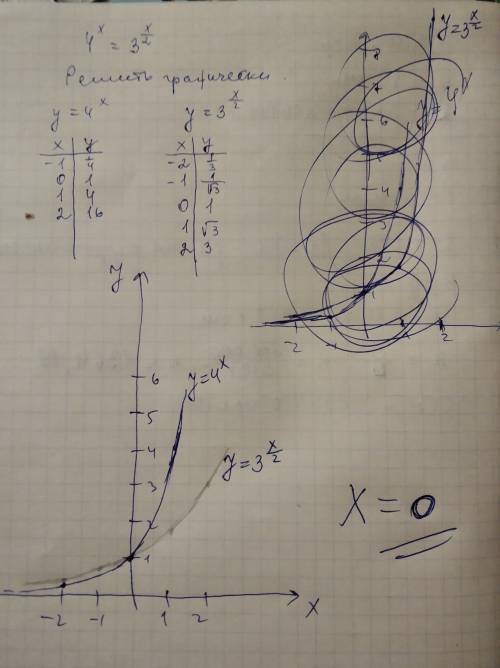 4^x = 3^(x/2)
Решить графически.
y = 4^x
x | y
-1 | 1/4
0 | 1
1 | 4
2 | 16
y = 3^(x/2)
x | y
-2 | 1/3
-1 | 1/√3
0 | 1
1 | √3
2 | 3
y=3^(x/2)
y=4^x
8
7
6
4
3
2
1
-2 -1 1 2
y
6
5
4
3
2
1
-2 -1 1 2 x
y=4^x
y=3^(x/2)
x = 0